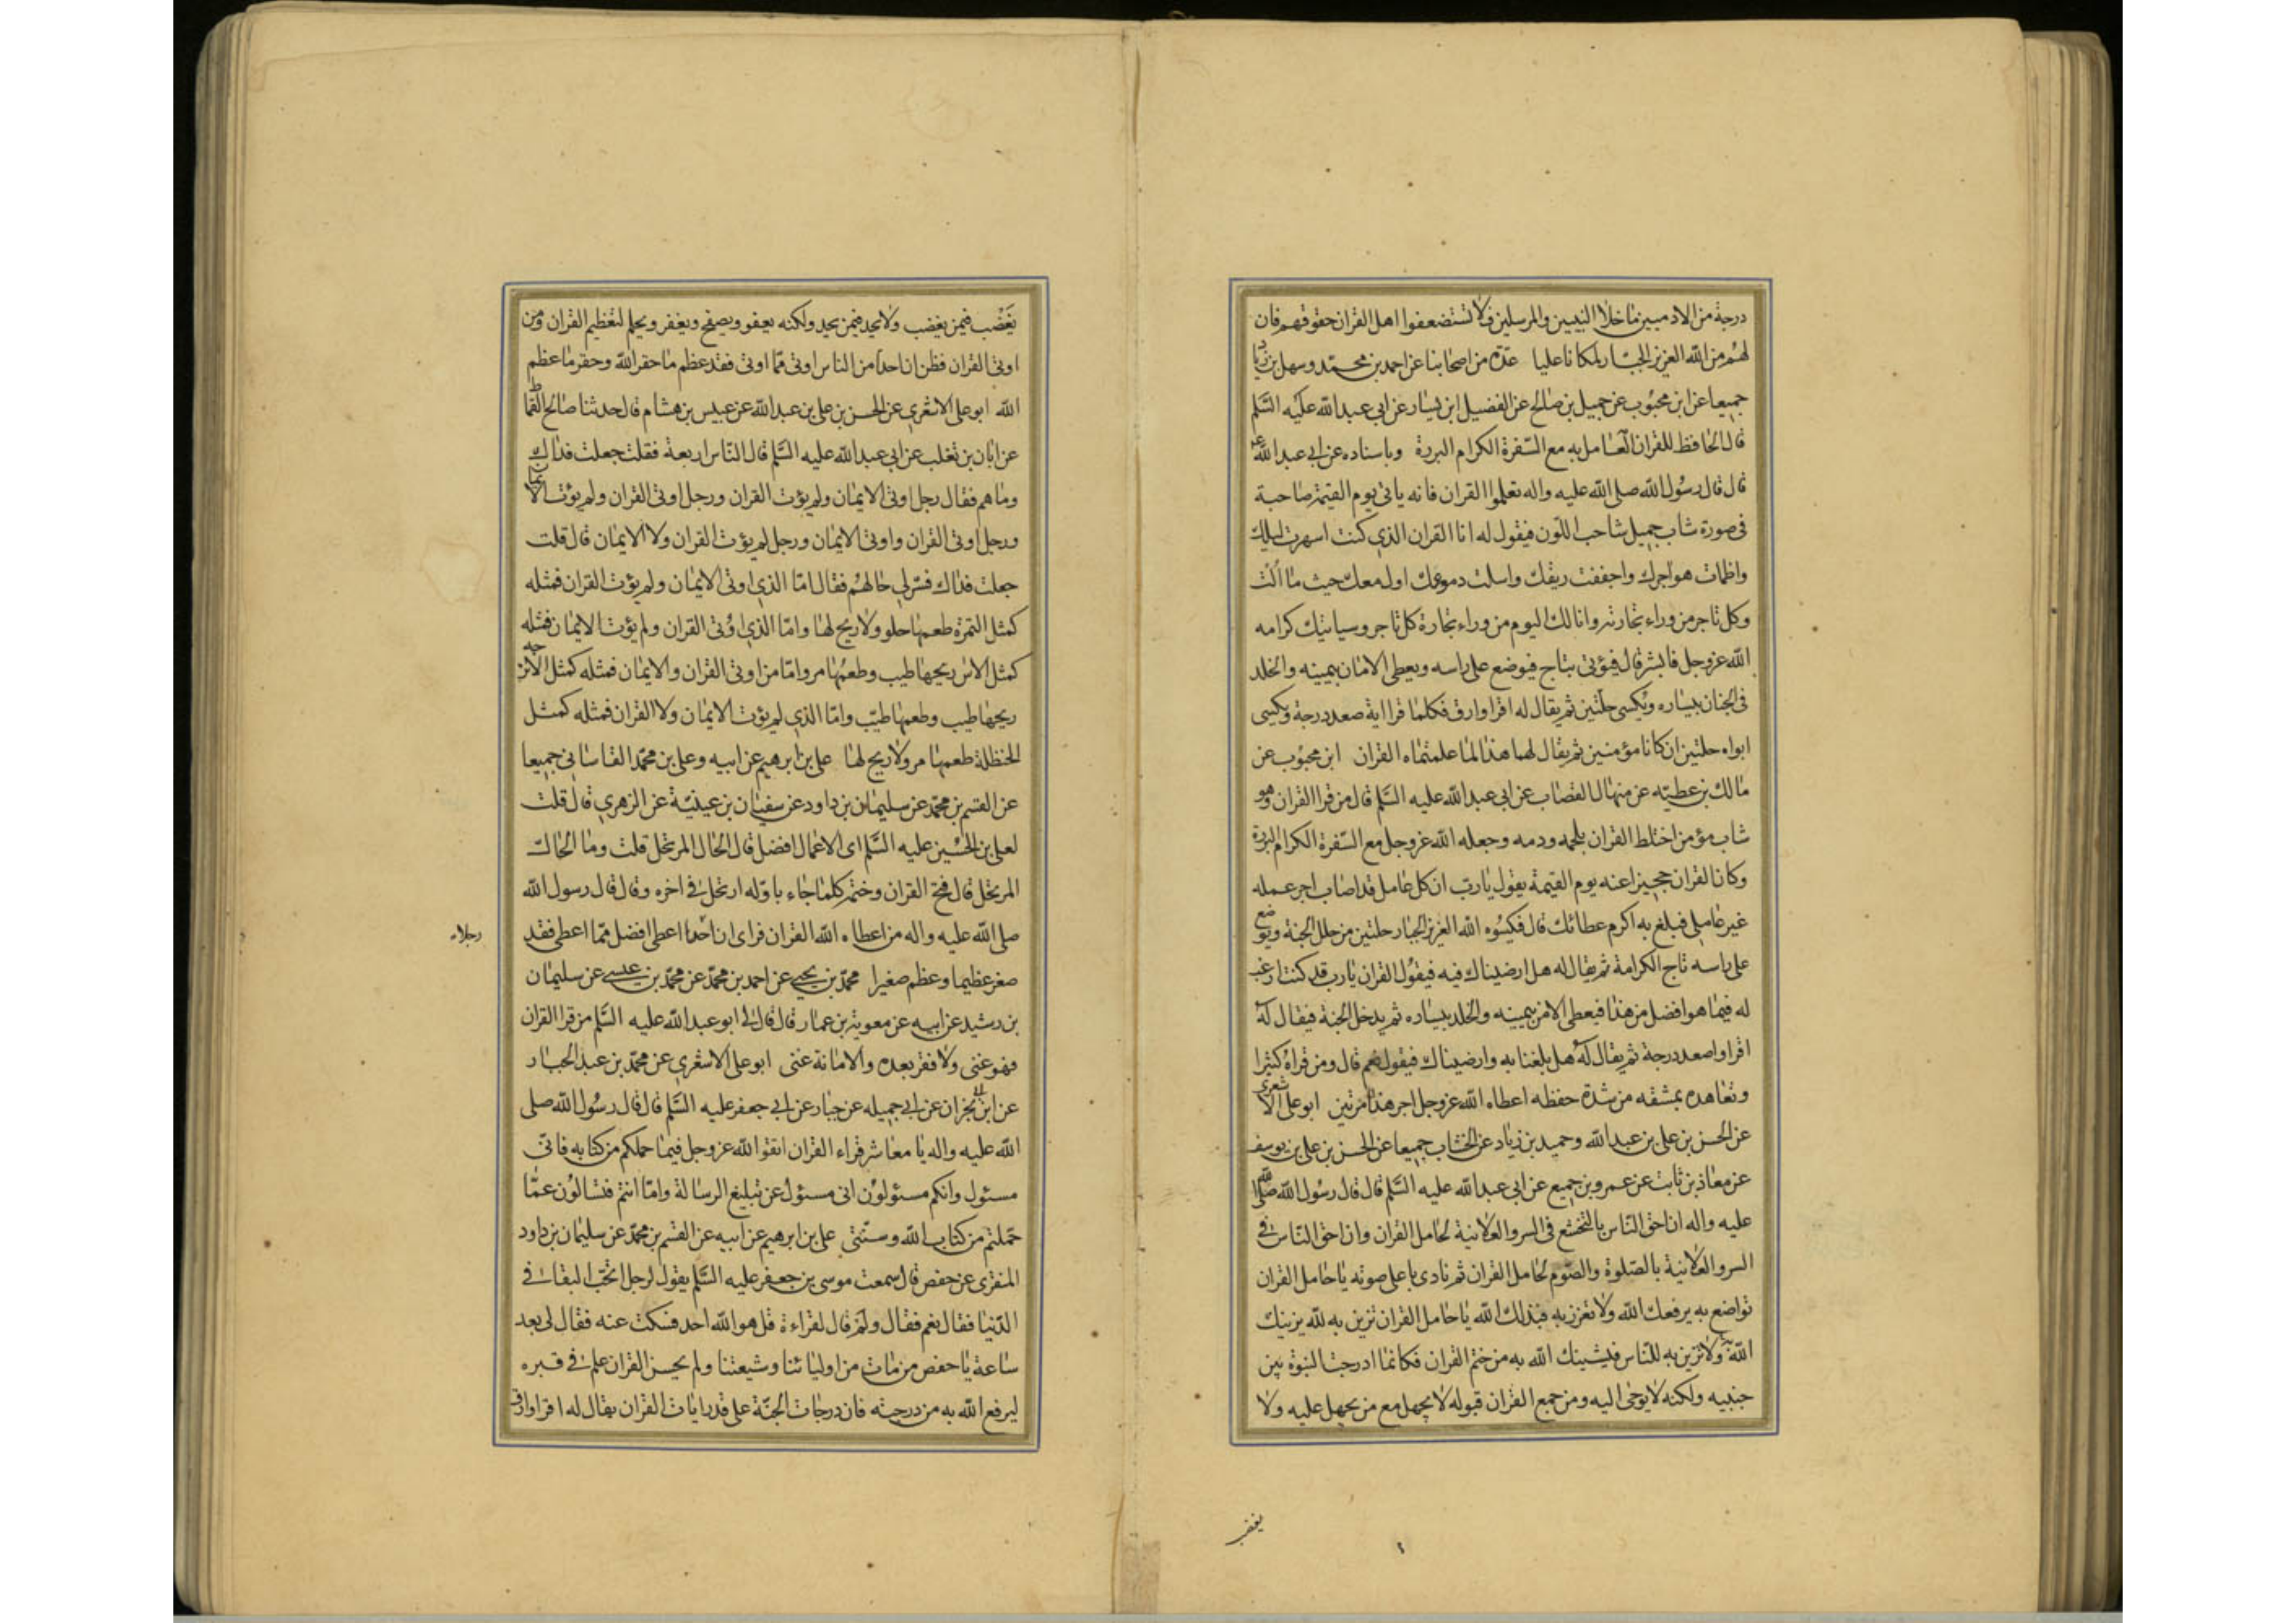 درجة من الادميين ما خلا النبيين والمرسلين فلا تستضعفوا اهل القران حقوقهم فان
لهم من الله العزيز الجبار لمكانا عليا عدة من اصحابنا عن احمد بن محمد وسهل بن زياد
جميعا عن ابن محبوب عن جميل بن صالح عن الفضيل ابن يسار عن ابي عبد الله عليه السلم
قال الحافظ للقران العامل به مع السفرة الكرام البررة وباسناده عن ابي عبد الله ع
قال قال رسول الله صلى الله عليه واله تعلموا القران فانه ياتي يوم القيمة صاحبة
في صورة شاب جميل شاحب اللون فيقول له انا القران الذي كنت اسهرت ليلك
واظمات هواجرك واجففت ريقك واسلت دموعك اول معك حيث ما الت
وكل تاجر من وراء تجارته وانا لك اليوم من وراء تجارة كل تاجر وسياتيك كرامه
الله عز وجل فابشر قال فيؤتى بتاج فيوضع على راسه ويعطى الامان بيمينه والخلد
في الجنان بيساره ويكسى حلتين ثم يقال له اقرا وارق فكلما قرا اية صعد درجة ويكسى
ابواه حلتين ان كانا مؤمنين ثم يقال لهما هذا لما علمتماه القران ابن محبوب عن
مالك بن عطيه عن منهال القصاب عن ابي عبد الله عليه السلم قال من قرا القران وهو
شاب مؤمن اختلط القران بلحمه ودمه وجعله الله عز وجل مع السفرة الكرام البررة
وكان القران حجيزا عنه يوم القيمة يقول يا رب ان كل عامل قد اصاب اجر عمله
غير عاملي فبلغ به اكرم عطائك قال فيكسوه الله العزيز الجبار حلتين من حلل الجنة ويوضع
على راسه تاج الكرامة ثم يقال له هل ارضيناك فيه فيقول القران يا رب قد كنت ارغب
له فيما هو افضل من هذا فيعطى الامن بيمينه والخلد بيساره ثم يدخل الجنة فيقال له
اقرا واصعد درجة ثم يقال له هل بلغنا به وارضيناك فيقول نعم قال ومن قراه كثيرا
وتعاهده بمشقه من شدة حفظه اعطاه الله عز وجل اجر هذا مرتين ابو علي الاشعري
عن الحسن بن علي بن عبد الله وحميد بن زياد عن الخشاب جميعا عن الحسن بن علي بن يوسف
عن معاذ بن ثابت عن عمرو بن جميع عن ابي عبد الله عليه السلم قال قال رسول الله صلى الله
عليه واله ان احق الناس بالتخشع في السر والعلانية لحامل القران وان احق الناس في
السر والعلانية بالصلوة والصوم لحامل القران ثم نادى باعلى صوته يا حامل القران
تواضع به يرفعك الله ولا تعزز به فيذلك الله يا حامل القران تزين به لله يزينك
الله به ولا تزين به للناس فيشينك الله به من ختم القران فكانما ادرجت النبوة بين
جنبيه ولكنه لا يوحى اليه ومن جمع القران قبوله لا يجهل مع من يجهل عليه ولا
يغضب فيمن يغضب ولا يحد فيمن يحد ولكنه يعفو ويصفح ويغفر ويحلم لتعظيم القران ومن
اوتي القران فظن ان احدا من الناس اوتي مما اوتي فقد عظم ما حقر الله وحقر ما عظم
الله ابو علي الاشعري عن الحسن بن علي بن عبد الله عن عبيس بن هشام قال حدثنا صالح القماط
عن ابان بن تغلب عن ابي عبد الله عليه السلم قال الناس اربعة فقلت جعلت فداك
وما هم فقال رجل اوتي الايمان ولم يؤت القران ورجل اوتي القران ولم يؤت الايمان
ورجل اوتي القران واوتي الايمان ورجل لم يؤت القران ولا الايمان قال قلت
جعلت فداك فسر لي حالهم فقال اما الذي اوتي الايمان ولم يؤت القران فمثله
كمثل التمرة طعمها حلو ولا ريح لها واما الذي اوتي القران ولم يؤت الايمان فمثله
كمثل الاس ريحها طيب وطعمها مر واما من اوتي القران والايمان فمثله كمثل الاترجه
ريحها طيب وطعمها طيب واما الذي لم يؤت الايمان ولا القران فمثله كمثل
الحنظلة طعمها مر ولا ريح لها علي بن ابرهيم عن ابيه وعلي بن محمد القاساني جميعا
عن القسم بن محمد عن سليمان بن داود عن سفيان بن عيينة عن الزهري قال قلت
لعلي بن الحسين عليه السلم اى الاعمال افضل قال الحال المرتحل قلت وما الحال
المرتحل قال فتح القران وختم كلما جاء باوله ارتحل في اخره وقال قال رسول الله
صلى الله عليه واله من اعطاه الله القران فراى ان احدا اعطي افضل مما اعطي فقد
رجلاء
صغر عظيما وعظم صغيرا محمد بن يحيى عن احمد بن محمد عن محمد بن عيسى عن سليمان
بن رشيد عن ابيه عن معوية بن عمار قال قال لي ابو عبد الله عليه السلم من قرا القران
فهو غنى ولا فقر بعده والا مانة غنى ابو علي الاشعري عن محمد بن عبد الجبار
عن ابن ابي نجران عن ابي جميله عن جبار عن ابي جعفر عليه السلم قال قال رسول الله صلى
الله عليه واله يا معاشر قراء القران اتقوا الله عز وجل فيما حملكم من كتابه فاني
مسئول وانكم مسئولون اني مسئول عن تبليغ الرسالة واما انتم فتسالون عما
حملتم من كتاب الله وسنتي علي بن ابرهيم عن ابيه عن القسم بن محمد عن سليمان بن داود
المنقري عن حفص قال سمعت موسى بن جعفر عليه السلم يقول لرجل اتحب البقاء في
الدنيا فقال نعم فقال ولم قال لقراءة قل هو الله احد فسكت عنه فقال لي بعد
ساعة يا حفص من مات من اوليائنا وشيعتنا ولم يحسن القران علم في قبره
ليرفع الله به من درجته فان درجات الجنة على قدر ايات القران يقال له اقرا وارق